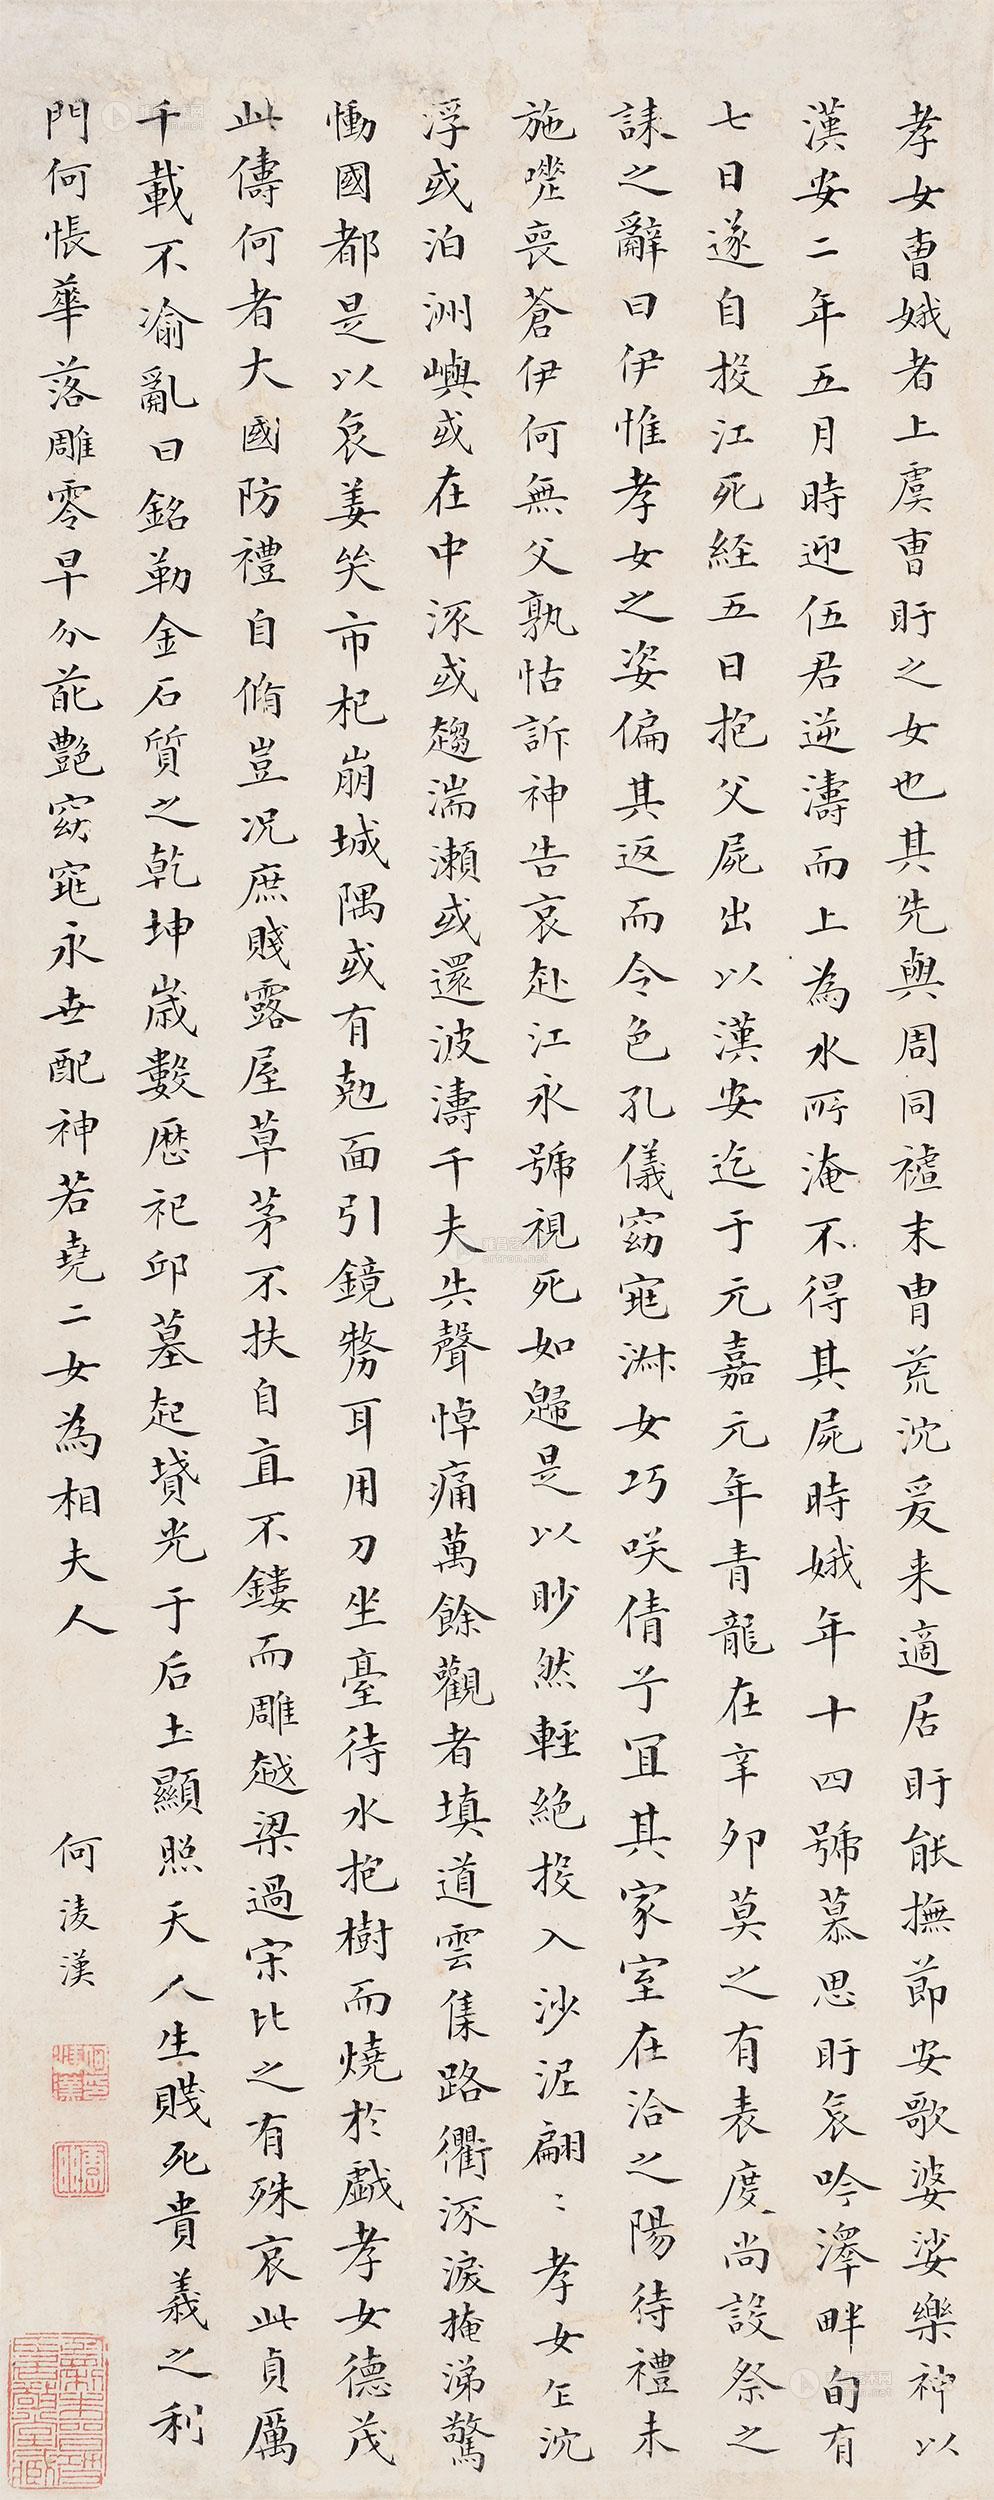 孝女曹娥者上虞曹盱之女也其先與周同禮末胄荒沈爰来適居盱能撫節安歌婆娑樂神以
漢安二年五月時迎伍君逆濤而上為水所淹不得其屍時娥年十四號慕思盱哀吟澤畔旬有
七日遂自投江死経五日抱父屍出以漢安迄于元嘉元年青龍在辛卯莫之有表度尚設祭之
誄之辭曰伊惟孝女之姿偏其返而令色孔儀窈窕淋女巧咲倩兮宜其家室在洽之陽待禮未
施嗟喪蒼伊何無父孰怙訴神告哀赴江永號視死如歸是以眇然輕絕投入沙泥翩〻孝女乍沈
浮或泊洲嶼或在中流或趨湍瀨或還波濤千夫失聲悼痛萬餘觀者填道雲集路衢流淚掩涕驚
慟國都是以哀姜哭市杞崩城隅或有尅面引鏡剺耳用刀坐臺待水抱樹而燒於戲孝女德茂
此儔何者大國防禮自脩豈况庶賤露屋草茅不扶自直不鏤而雕越梁過宋比之有殊哀此貞厲
千載不渝亂曰銘勒金石質之乾坤歲數歷祀邱墓起墳光于后土顯照天人生賤死貴義之利
門何悵華落雕零早分葩艷窈窕永世配神若堯二女為相夫人
何淩漢